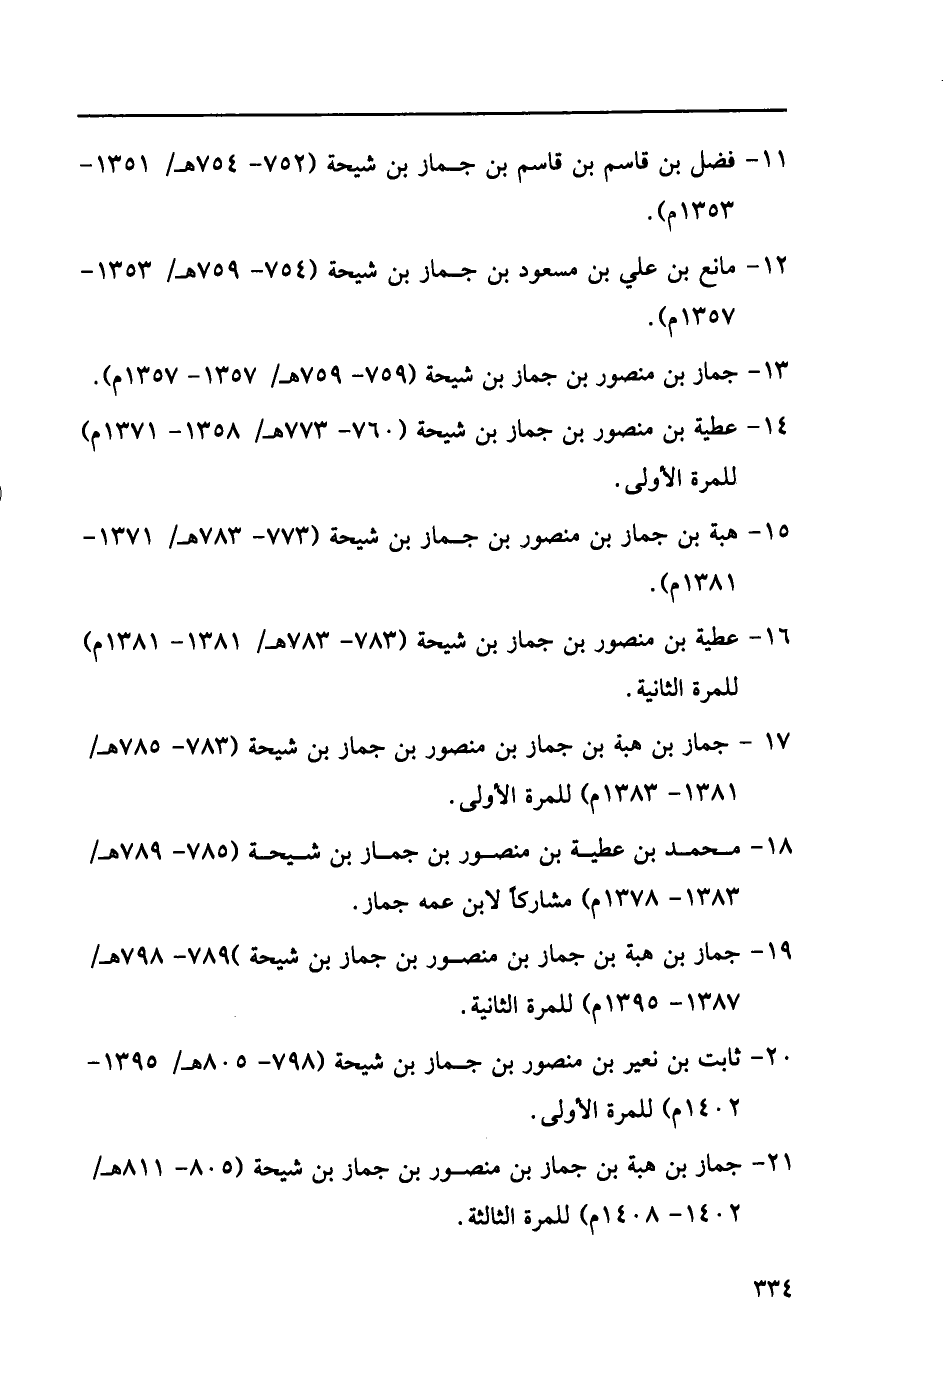 ١١- فضل بن قاسم بن قاسم بن جماز بن شيحة (٧٥٢- ٧٥٤هـ/ ١٣٥١-
١٣٥٣م).
١٢- مانع بن علي بن مسعود بن جماز بن شيحة (٧٥٤- ٧٥٩هـ/ ١٣٥٣-
١٣٥٧م).
١٣- جماز بن منصور بن جماز بن شيحة (٧٥٩- ٧٥٩هـ/ ١٣٥٧- ١٣٥٧م).
١٤- عطية بن منصور بن جماز بن شيحة (٧٦٠- ٧٧٣هـ/ ١٣٥٨- ١٣٧١م)
للمرة الأولى.
١٥- هبة بن جماز بن منصور بن جماز بن شيحة (٧٧٣- ٧٨٣هـ/ ١٣٧١-
١٣٨١م).
١٦- عطية بن منصور بن جماز بن شيحة (٧٨٣- ٧٨٣هـ/ ١٣٨١- ١٣٨١م)
للمرة الثانية.
١٧ - جماز بن هبة بن جماز بن منصور بن جماز بن شيحة (٧٨٣- ٧٨٥هـ/
١٣٨١- ١٣٨٣م) للمرة الأولى.
١٨- محمد بن عطية بن منصور بن جماز بن شيحة (٧٨٥- ٧٨٩هـ/
١٣٨٣- ١٣٧٨م) مشاركاً لابن عمه جماز.
١٩- جماز بن هبة بن جماز بن منصور بن جماز بن شيحة )٧٨٩- ٧٩٨هـ/
١٣٨٧- ١٣٩٥م) للمرة الثانية.
٢٠- ثابت بن نعير بن منصور بن جماز بن شيحة (٧٩٨- ٨٠٥هـ/ ١٣٩٥-
١٤٠٢م) للمرة الأولى.
٢١- جماز بن هبة بن جماز بن منصور بن جماز بن شيحة (٨٠٥- ٨١١هـ/
١٤٠٢- ١٤٠٨م) للمرة الثالثة.
٣٣٤